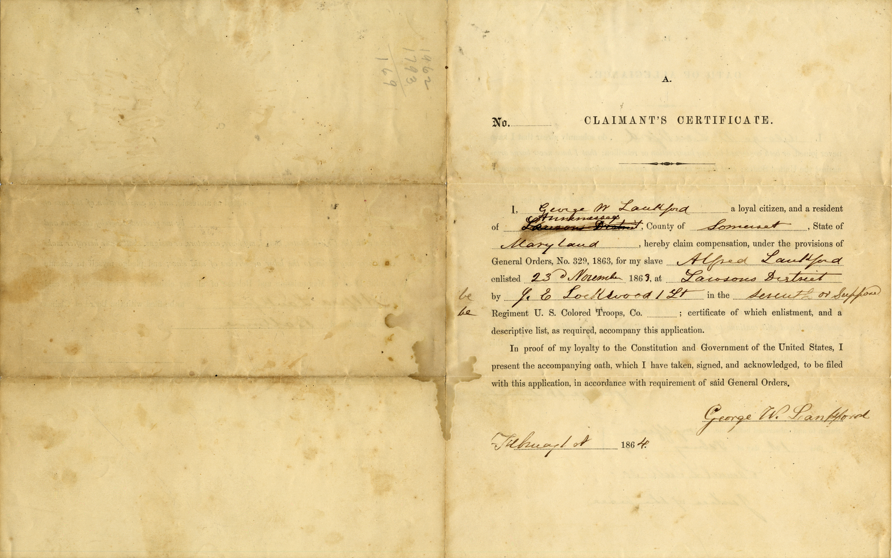 1962
1793
169
A.
No. CLAIMANT'S CERTIFICATE.
I, George W Lankford a loyal citizen, and a resident
Annamessex
of Lawsons District, County of Somerset, State of
Maryland, hereby claim compensation, under the provisions of
General Orders, No. 329, 1863, for my slave Alfred Lankford
enlisted 23d November 1863, at Lawsons District
by J. E Lockwood 1 Lt in the seventh or Suppose
Regiment U. S. Colored Troops, Co. ; certificate of which enlistment, and a
descriptive list, as required, accompany this application.
In proof of my loyalty to the Constitution and Government of the United States, I
present the accompanying oath, which I have taken, signed, and acknowledged, to be filed
with this application, in accordance with requirement of said General Orders.
George W. Lankford
1864.